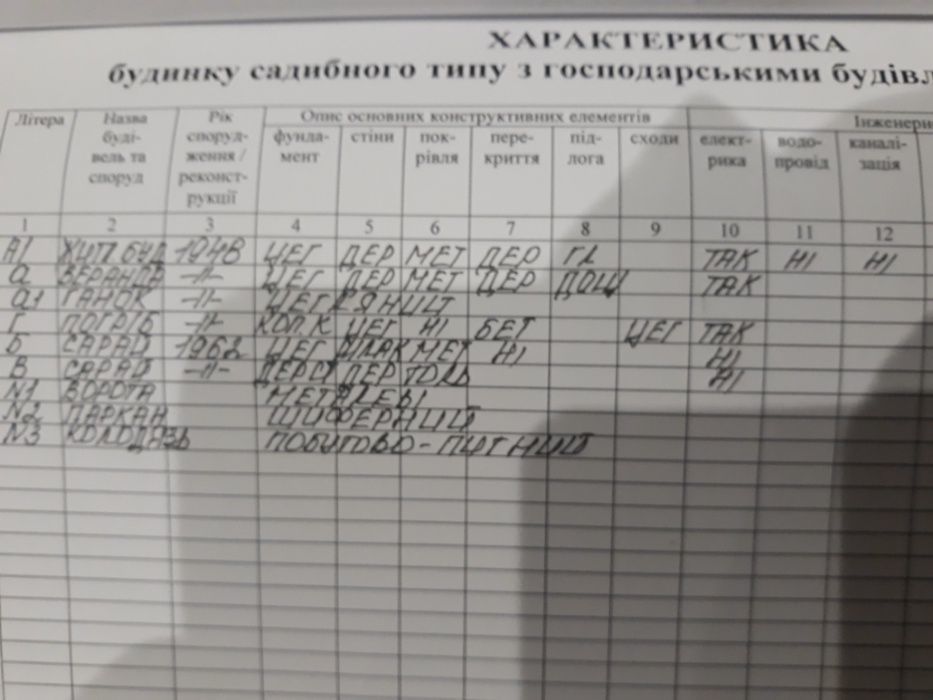 ХАРАКТЕРИСТИКА
будинку садибного типу з господарськими будівл
Літера Назва буді- вель та споруд Рік споруд- ження / реконст- рукції Опис основних конструктивних елементів Інженерн
фунда- мент стіни пок- рівля пере- криття під- лога сходи елект- рика водо- провід каналі- зація
1 2 3 4 5 6 7 8 9 10 11 12
А1 ЖИТЛ.БУД 1948 ЦЕГ ДЕР МЕТ ДЕР ТАК НІ НІ
а ВЕРАНДА -//- ЦЕГ ДЕР МЕТ ДЕР ДОЩ ТАК
а1 ГАНОК -//- ЦЕГ
Г ПОГРІБ -//- КОП.К ЦЕГ НІ БЕТ ЦЕГ ТАК
Б САРАЙ 1962 ЦЕГ ШЛАК МЕТ НІ НІ
В САРАЙ -//- ДЕР ТОЛЬ НІ
N1 ВОРОТА МЕТАЛЕВІ
N2 ПАРКАН ШИФЕРНИЙ
N3 КОЛОДЯЗЬ ПОБУТОВО-ПИТНИЙ